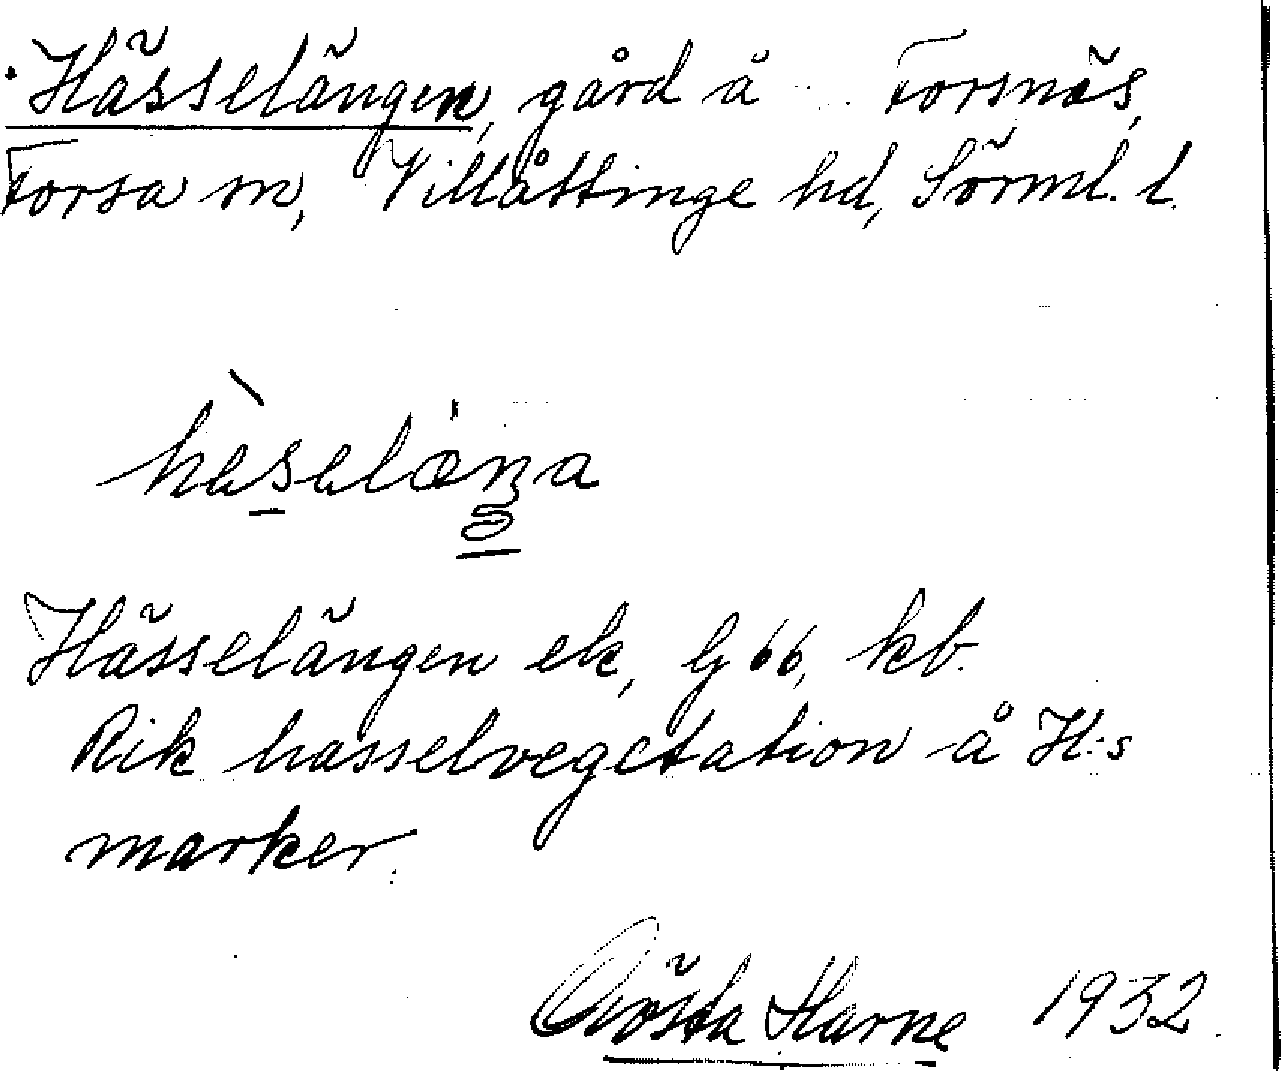 Hässelängen, gård å Forsnäs,
Forsa sn, Villåttinge hd, Sörml. l.
hèselæŋa
Hässelängen ek, G 66, kb.
Rik hasselvegetation å H:s
marker.
Gösta Harne 1932.